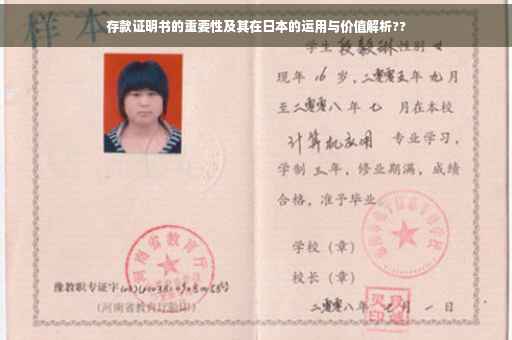 存款证明书的重要性及其在日本的运用与价值解析??
样本
学生段毅琳性别女
现年 16 岁，二零零五年 九月
至二零零八年 七 月在本校
计算机应用 专业学习，
学制 三 年，修业期满，成绩
合格，准予毕业。
学校（章）
校长（章）
二零零八年 七 月 一 日
河南省教育厅
豫教职专证字
(河南省教育厅验印)